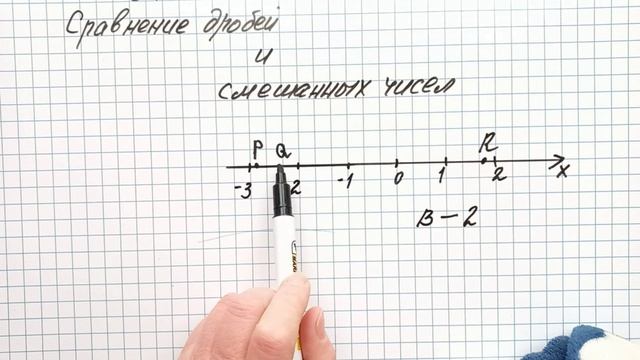 Сравнение дробей
и
смешанных чисел
P Q R
-3 2 -1 0 1 2 x
В-2